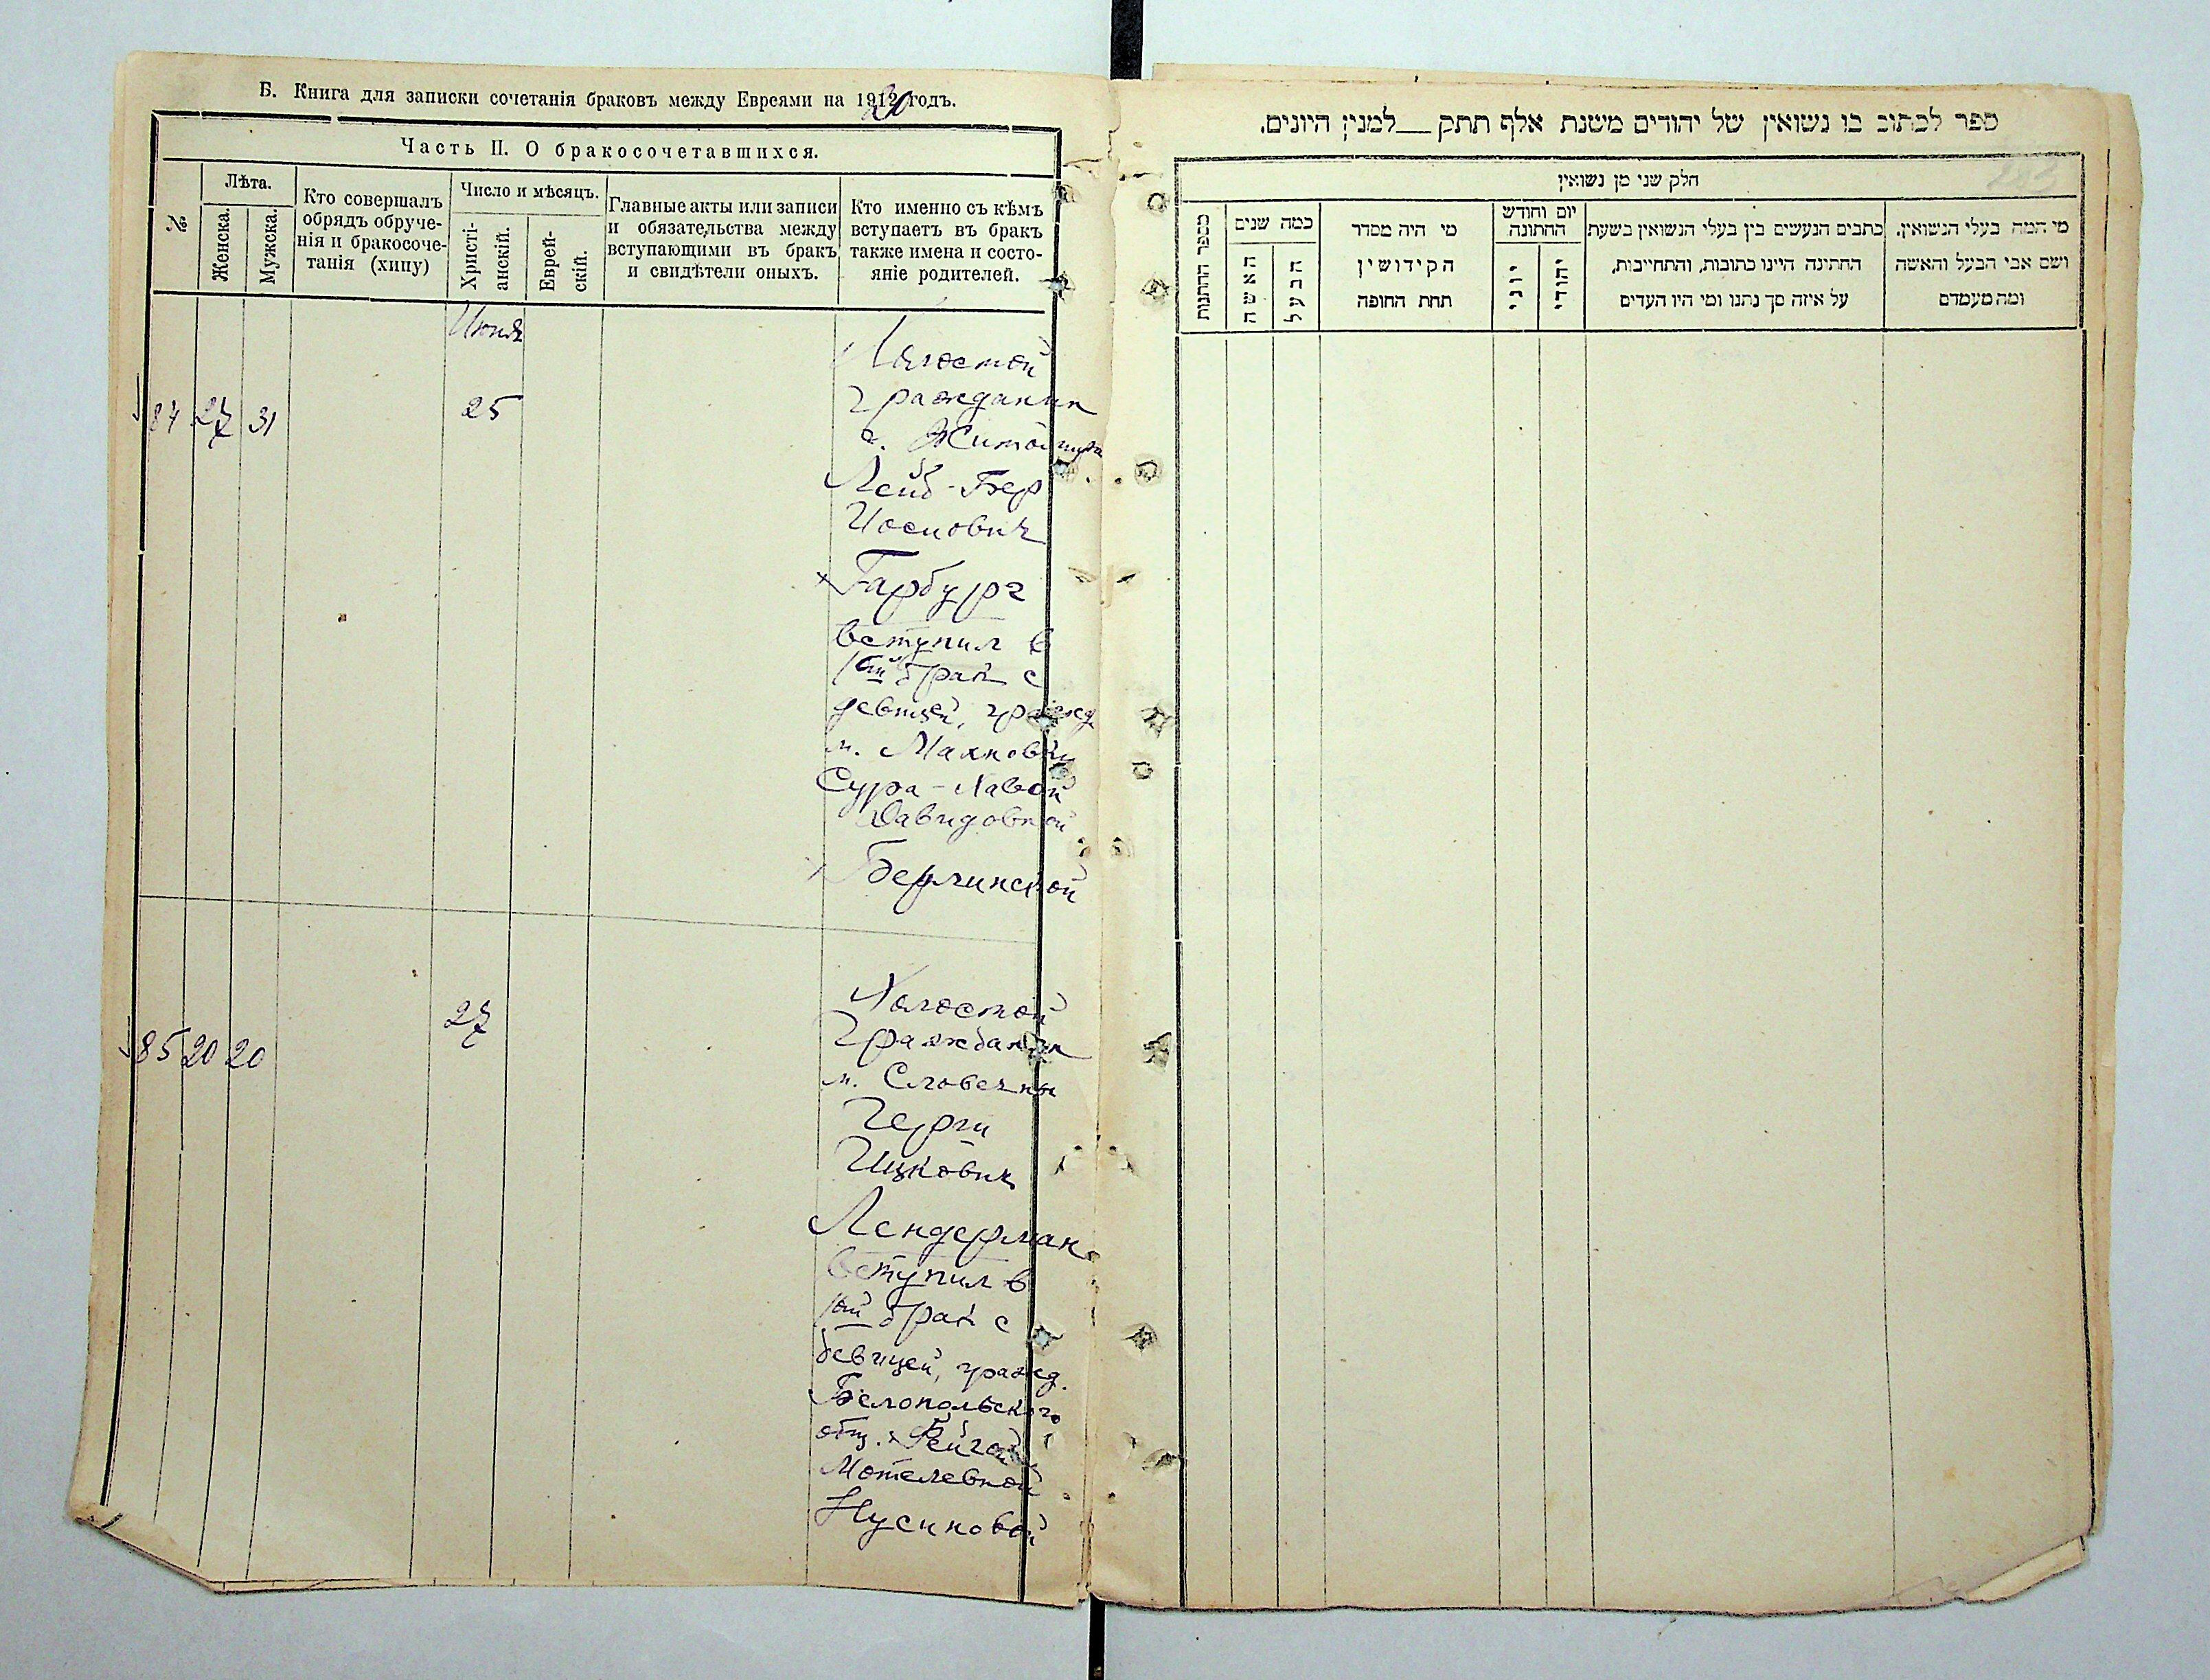 Б. Книга для записки сочетанія браковъ между Евреями на 1920 годъ.
Часть II. О бракосочетавшихся.
№
Лѣта.
Женска.
Мужска.
Кто совершалъ
обрядъ обруче-
нія и бракосоче-
танія (хипу)
Число и мѣсяцъ.
Христі-
анскій.
Еврей-
скій.
Главные акты или записи
и обязательства между
вступающими въ бракъ
и свидѣтели оныхъ.
Кто именно съ кѣмъ
вступаетъ въ бракъ
также имена и состо-
яніе родителей.
Июня
84 27 31 25
Холостой
гражданин
г. Житомира
Лейб-Бер
Иосиович
Гарбург
вступил в
1ый брак с
девицей, гражд
м. Махновки
Сура-Хавой
Давидовной
Берлинской
85 20 20 27
Холостой
Гражданин
м. Словечны
Герш
Ицкович
Лендерман
вступил в
1ый брак с
девицей, гражд.
Белопольского
общ. Рейзой
Мотелевной
Нусиновой
ספר לכתוב בו נשואין של יהודים משנת אלף תתק__למנין היונים.
חלק שני מן נשואין
מספר החתנות
כמה שנים
האשה
הבעל
מי היה מסדר
הקידושין
תחת החופה
יום וחודש
החתונה
יוני
יהודי
כתבים הנעשים בין בעלי הנשואין בשעת
החתינה היינו כתובות, והתחייבות,
על איזה סך נתנו ומי היו העדים
מי המה בעלי הנשואין.
ושם אבי הבעל והאשה
ומה מעמדם